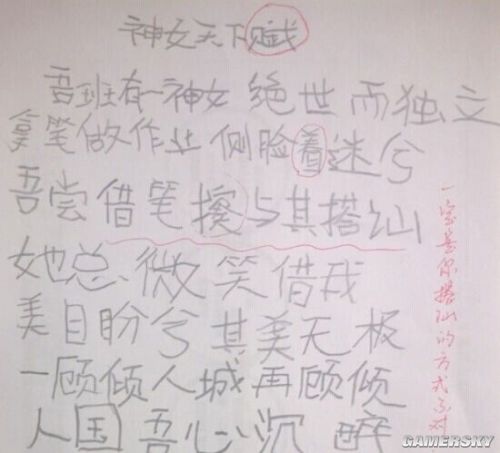 神女天下赋
吾班有一神女 绝世而独立
拿笔做作业 侧脸着迷兮
吾尝借笔擦与其搭讪
她总微笑借我
美目盼兮其美无极
一顾倾人城再顾倾
人国吾心沉醉
一定是你搭讪的方式不对
GAMERSKY